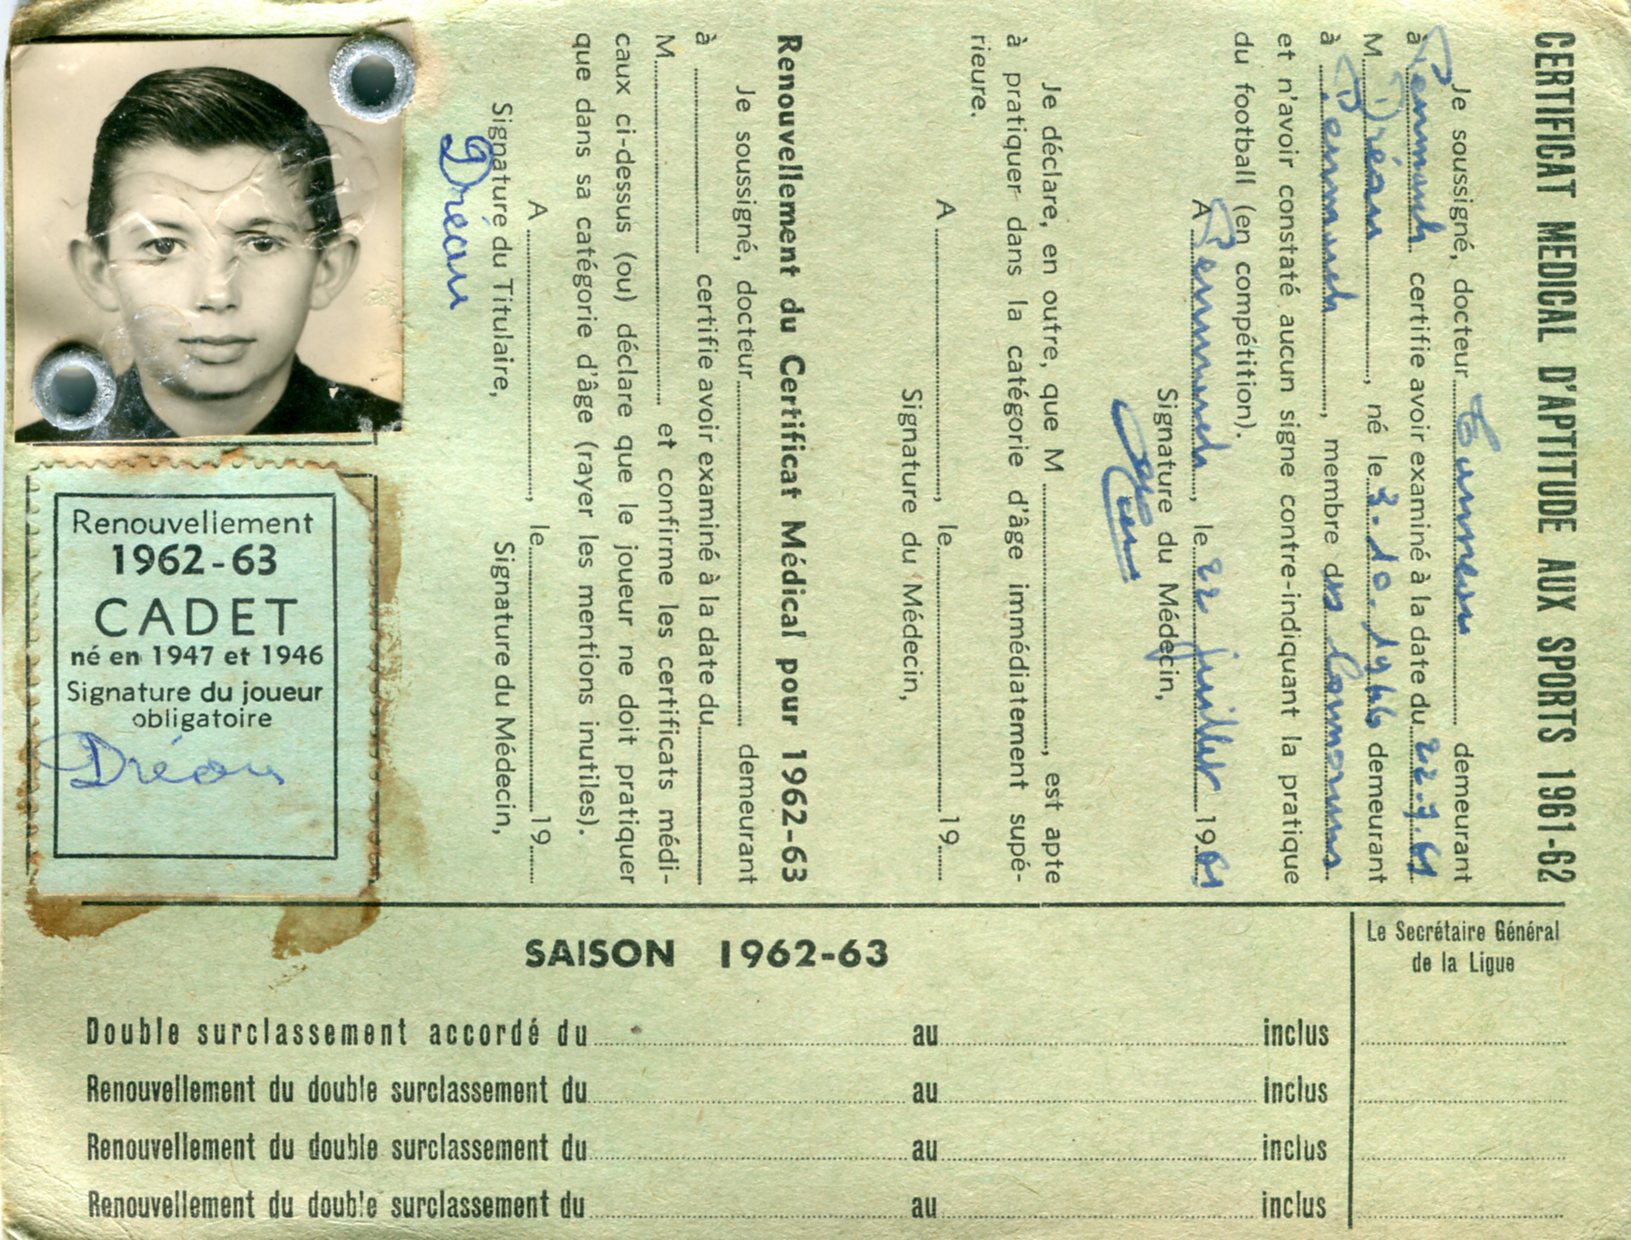 CERTIFICAT MEDICAL D'APTITUDE AUX SPORTS 1961-62
Je soussigné, docteur demeurant
à Penmarch certifie avoir examiné à la date du 22.7.61
M. Dréau, né le 3.10.1946 demeurant
à Penmarch, membre des Cormorans
et n'avoir constaté aucun signe contre-indiquant la pratique
du football (en compétition).
A Penmarch, le 22 juillet 1961
Signature du Médecin,
Je déclare, en outre, que M, est apte
à pratiquer dans la catégorie d'âge immédiatement supé-
rieure.
A, le 19
Signature du Médecin,
Renouvellement du Certificat Médical pour 1962-63
Je soussigné, docteur demeurant
à certifie avoir examiné à la date du
M. et confirme les certificats médi-
caux ci-dessus (ou) déclare que le joueur ne doit pratiquer
que dans sa catégorie d'âge (rayer les mentions inutiles).
A, le 19
Signature du Titulaire, Signature du Médecin,
Dréau
Renouvellement
1962-63
CADET
né en 1947 et 1946
Signature du joueur
obligatoire
Dréau
SAISON 1962-63
Le Secrétaire Général
de la Ligue
Double surclassement accordé du au inclus
Renouvellement du double surclassement du au inclus
Renouvellement du double surclassement du au inclus
Renouvellement du double surclassement du au inclus